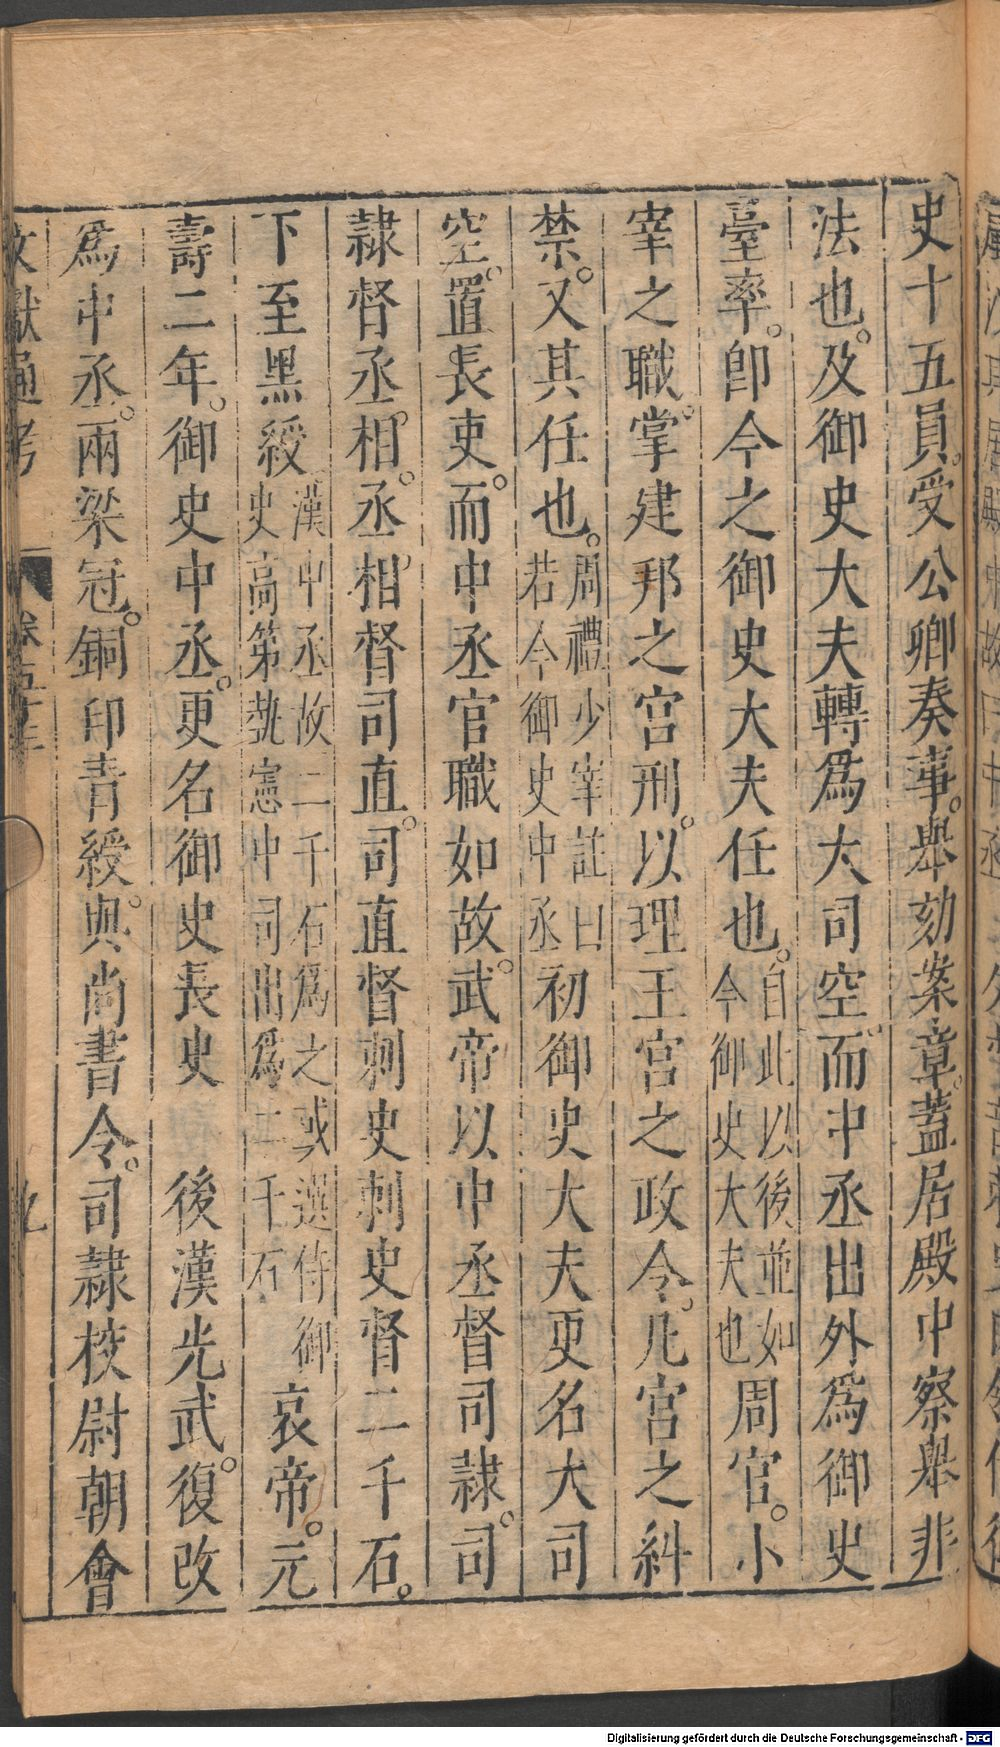 史十五員受公卿奏事。舉劾案章。蓋居殿中察舉非
法也。及御史大夫轉爲大司空而中丞出外爲御史
臺率。卽今之御史大夫任也。自此以後並如今御史大夫也周官。小
宰之職。掌建邦之宫刑。以理王宮之政令。凡宮之糾
禁。又其任也。周禮少宰註曰若今御史中丞初御史大夫更名大司
空。置長吏。而中丞官職如故。武帝以中丞督司隷。司
隷督丞相。丞相督司直。司直督刺史刺史督二千石。
下至黑綬漢中丞故二千石爲之或選侍御史高第執憲中司出爲二千石哀帝。元
壽二年。御史中丞。更名御史長史　後漢光武。復改
爲中丞。兩梁冠。銅印青綬。與尚書令。司隷校尉朝會
文獻通考
卷五十三
九
Digitalisierung gefördert durch die Deutsche Forschungsgemeinschaft - DFG